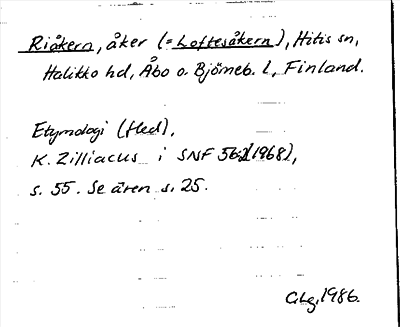 Riåkern, åker (= Loftesåkern), Hitis sn,
Halikko hd, Åbo o. Björneb. l, Finland.
Etymologi (fled),
K. Zilliacus i SNF 56:1(1968),
s. 55. Se även s. 25.
GLg, 1986.